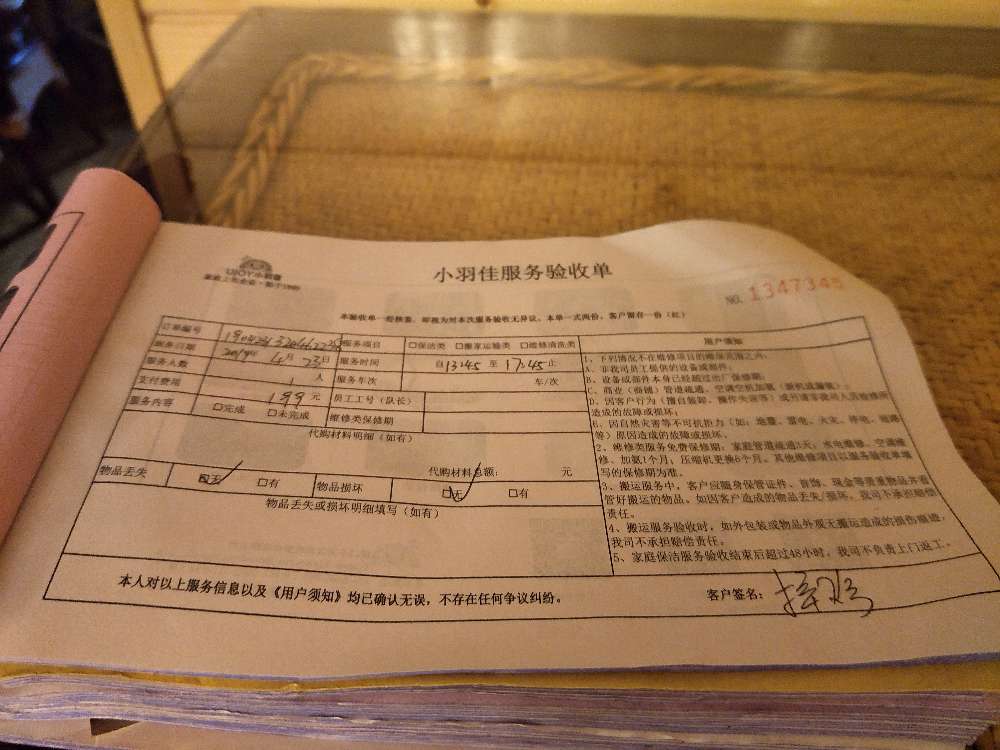 小羽佳服务验收单
NO. 1347345
本验收单一经核签，即视为对本次服务验收无异议。本单一式两份，客户留存一份（红）
订单编号
服务项目 □保洁类 □搬家运输类 □维修清洗类
服务日期 4月23日 服务时间 自13:45至17:45止
服务人数 1人 服务车次 车/次
支付费用 199元 员工工号（队长）
服务内容 □完成 □未完成 维修类保修期
代购材料明细（如有）
代购材料总额： 元
物品丢失 □无 □有 物品损坏 □无 □有
物品丢失或损坏明细填写（如有）
用户须知
1、下列情况不在维修项目的维保范围之内：
A、非我司员工提供的设备或部件；
B、设备或部件本身已经超过出厂保修期；
C、商业（商铺）管道疏通、空调空机加氨
D、因客户行为（擅自装卸、操作失误等）或
造成的故障或损坏；
因自然灾害等不可抗拒力（如：地震、雷电、火灾、停电、
等）原因造成的故障或损坏。
2、维修类服务免费保修期：家庭管道疏通 水电维修、空调维
修、加氨1个月；压缩机更换6个月。其他维修项目以服务验收单填
写的保修期为准。
3、搬运服务中，客户应随身保管证件、首饰、现金等贵重物品并看
管好搬运的物品。如因客户造成的物品丢失/损坏，我司不承担赔偿
责任。
4、搬运服务验收时，如外包装或物品外观无搬运造成的损伤痕迹，
我司不承担赔偿责任。
5、家庭保洁服务验收结束后超过48小时，我司不负责上门返工。
本人对以上服务信息以及《用户须知》均已确认无误，不存在任何争议纠纷。
客户签名：